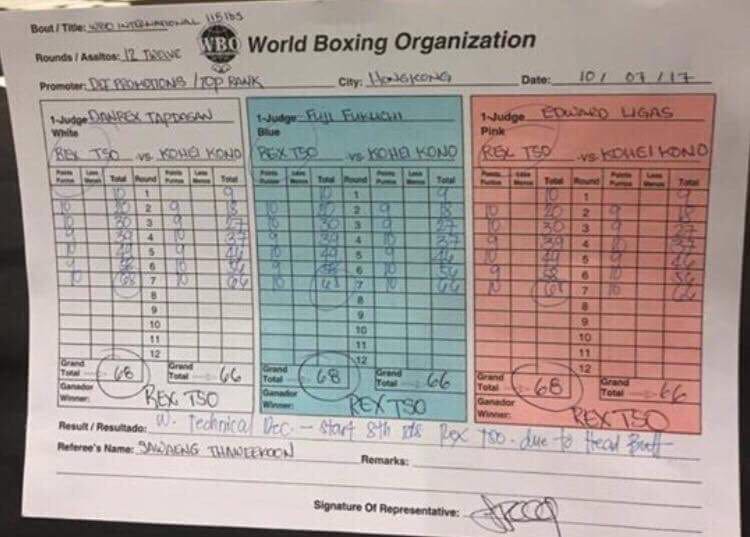 Bout / Title: WBO INTERNATIONAL 115 lbs
Rounds / Asaltos: 12 TWELVE
WBO
World Boxing Organization
Promoter: DEF PROMOTIONS / TOP RANK City: HONGKONG Date: 10/ 07 / 17
1-Judge DANREX TAPDASAN
White
REX TSO vs. KOHEI KONO
Points Puntos Less Menos Total Round Points Puntos Less Menos Total
10 1 9
10 20 2 9 18
10 30 3 9 27
9 39 4 10 37
10 49 5 9 46
9 58 6 10 56
10 68 7 10 66
8
9
10
11
12
Grand Total 68 Grand Total 66
Ganador
Winner: REX TSO
1-Judge FUJI FUKUCHI
Blue
REX TSO vs. KOHEI KONO
Points Puntos Less Menos Total Round Points Puntos Less Menos Total
10 1 9
10 20 2 9 18
10 30 3 9 27
9 39 4 10 37
10 49 5 9 46
9 58 6 10 56
10 68 7 10 66
8
9
10
11
12
Grand Total 68 Grand Total 66
Ganador
Winner: REX TSO
1-Judge EDWARD LIGAS
Pink
REX TSO vs. KOHEI KONO
Points Puntos Less Menos Total Round Points Puntos Less Menos Total
10 1 9
10 20 2 9 18
10 30 3 9 27
9 39 4 10 37
10 49 5 9 46
9 58 6 10 56
10 68 7 10 66
8
9
10
11
12
Grand Total 68 Grand Total 66
Ganador
Winner: REX TSO
Result / Resultado: W. Technical Dec. - start 8th rds Rex TSO. due to Head Butt
Referee's Name: SAWAENG THAWEEKOON Remarks:
Signature Of Representative: